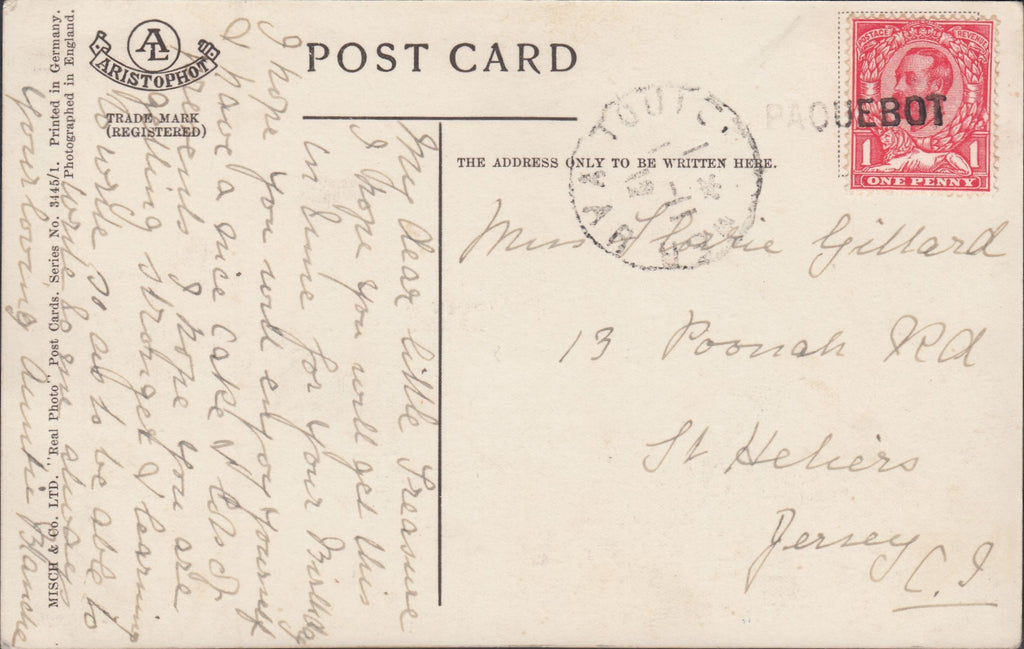 MISCH & Co. LTD. "Real Photo" Post Cards. Series No. 3445/1. Printed in Germany.
Photographed in England.
AL
ARISTOPHOT
TRADE MARK
(REGISTERED)
POST CARD
THE ADDRESS ONLY TO BE WRITTEN HERE.
PAQUEBOT
POSTAGE REVENUE
1 1
ONE PENNY
My dear little Treasure
I hope you will get this
in time for your Birthday
I hope you will enjoy yourself
& have a nice Cake & lots of
presents I hope you are
getting stronger & learning
to write so as to be able to
write to me always
Your loving Auntie Blanche
Miss Gillard
13 Poonah Rd
St Heliers
Jersey
C.I